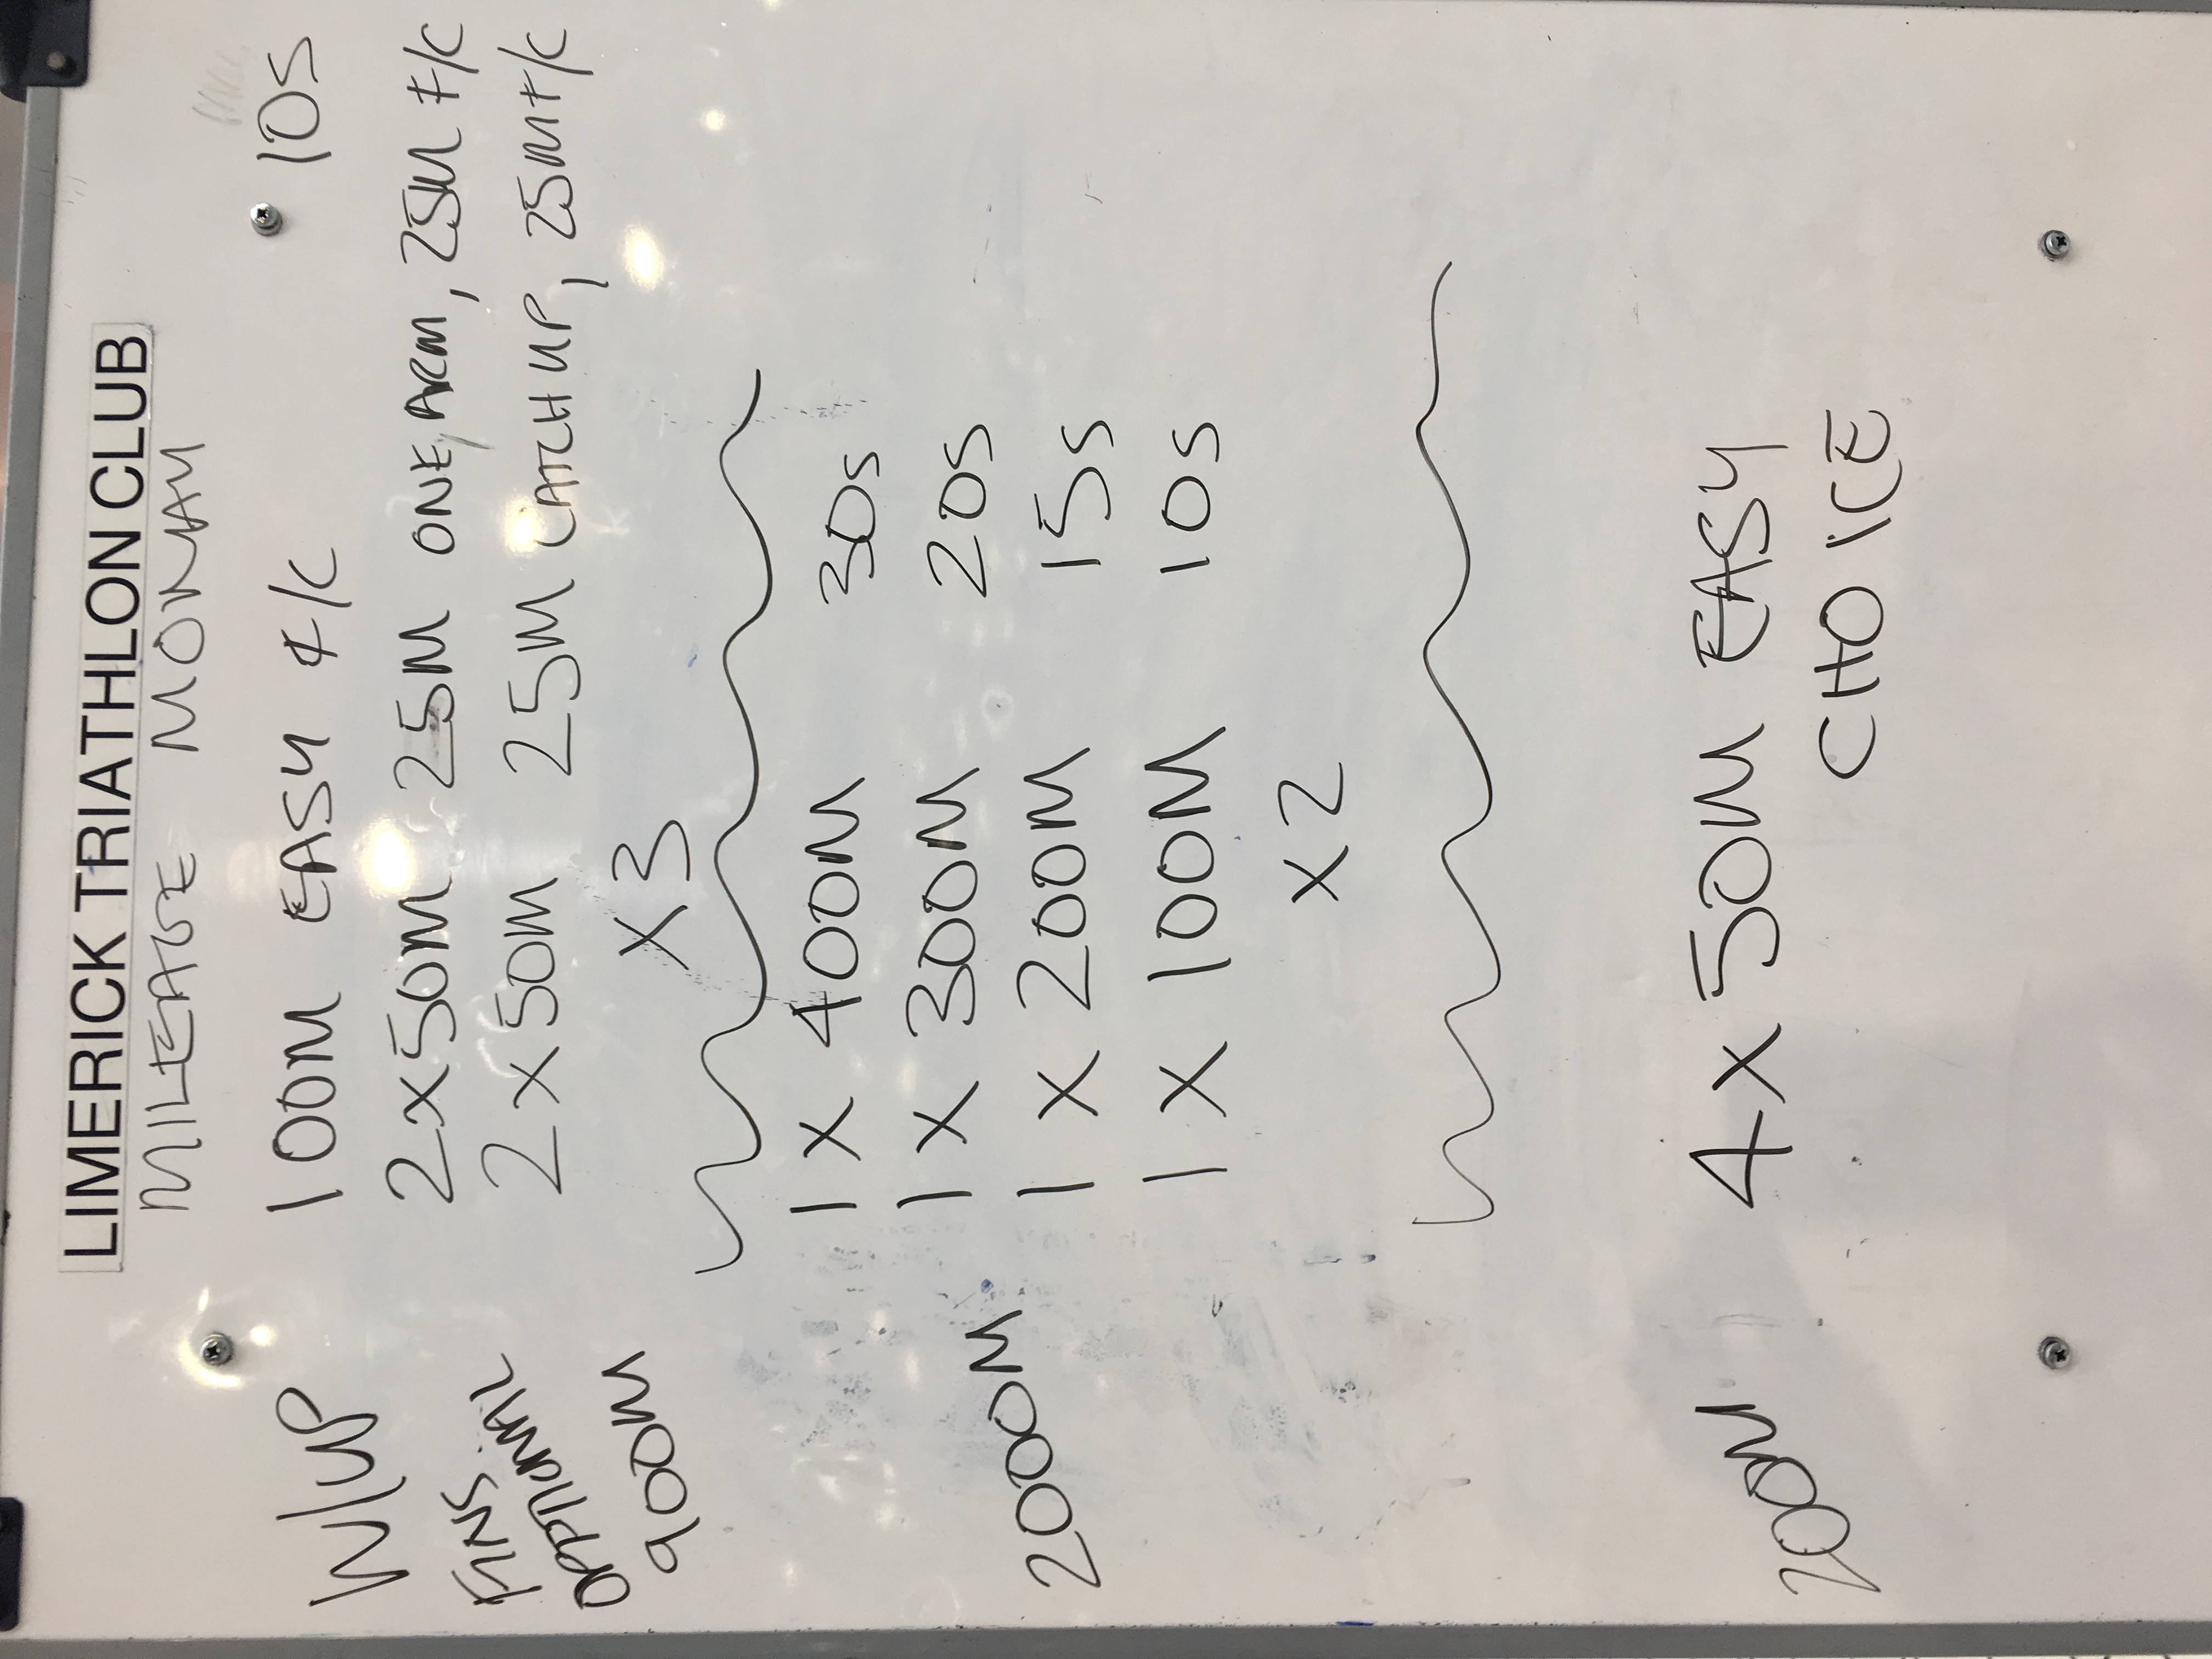 LIMERICK TRIATHLON CLUB
MILEAGE MONDAY
W/UP 100M EASY F/C 10S
FINS 2x50M 25M ONE ARM, 25M F/C
OPTIONAL 2x50M 25M CATCH UP, 25M F/C
900M X3
1 X 400M 30s
1 X 300M 20s
2000M 1 X 200M 15s
1 X 100M 10s
X2
200M 4x50M EASY
CHOICE